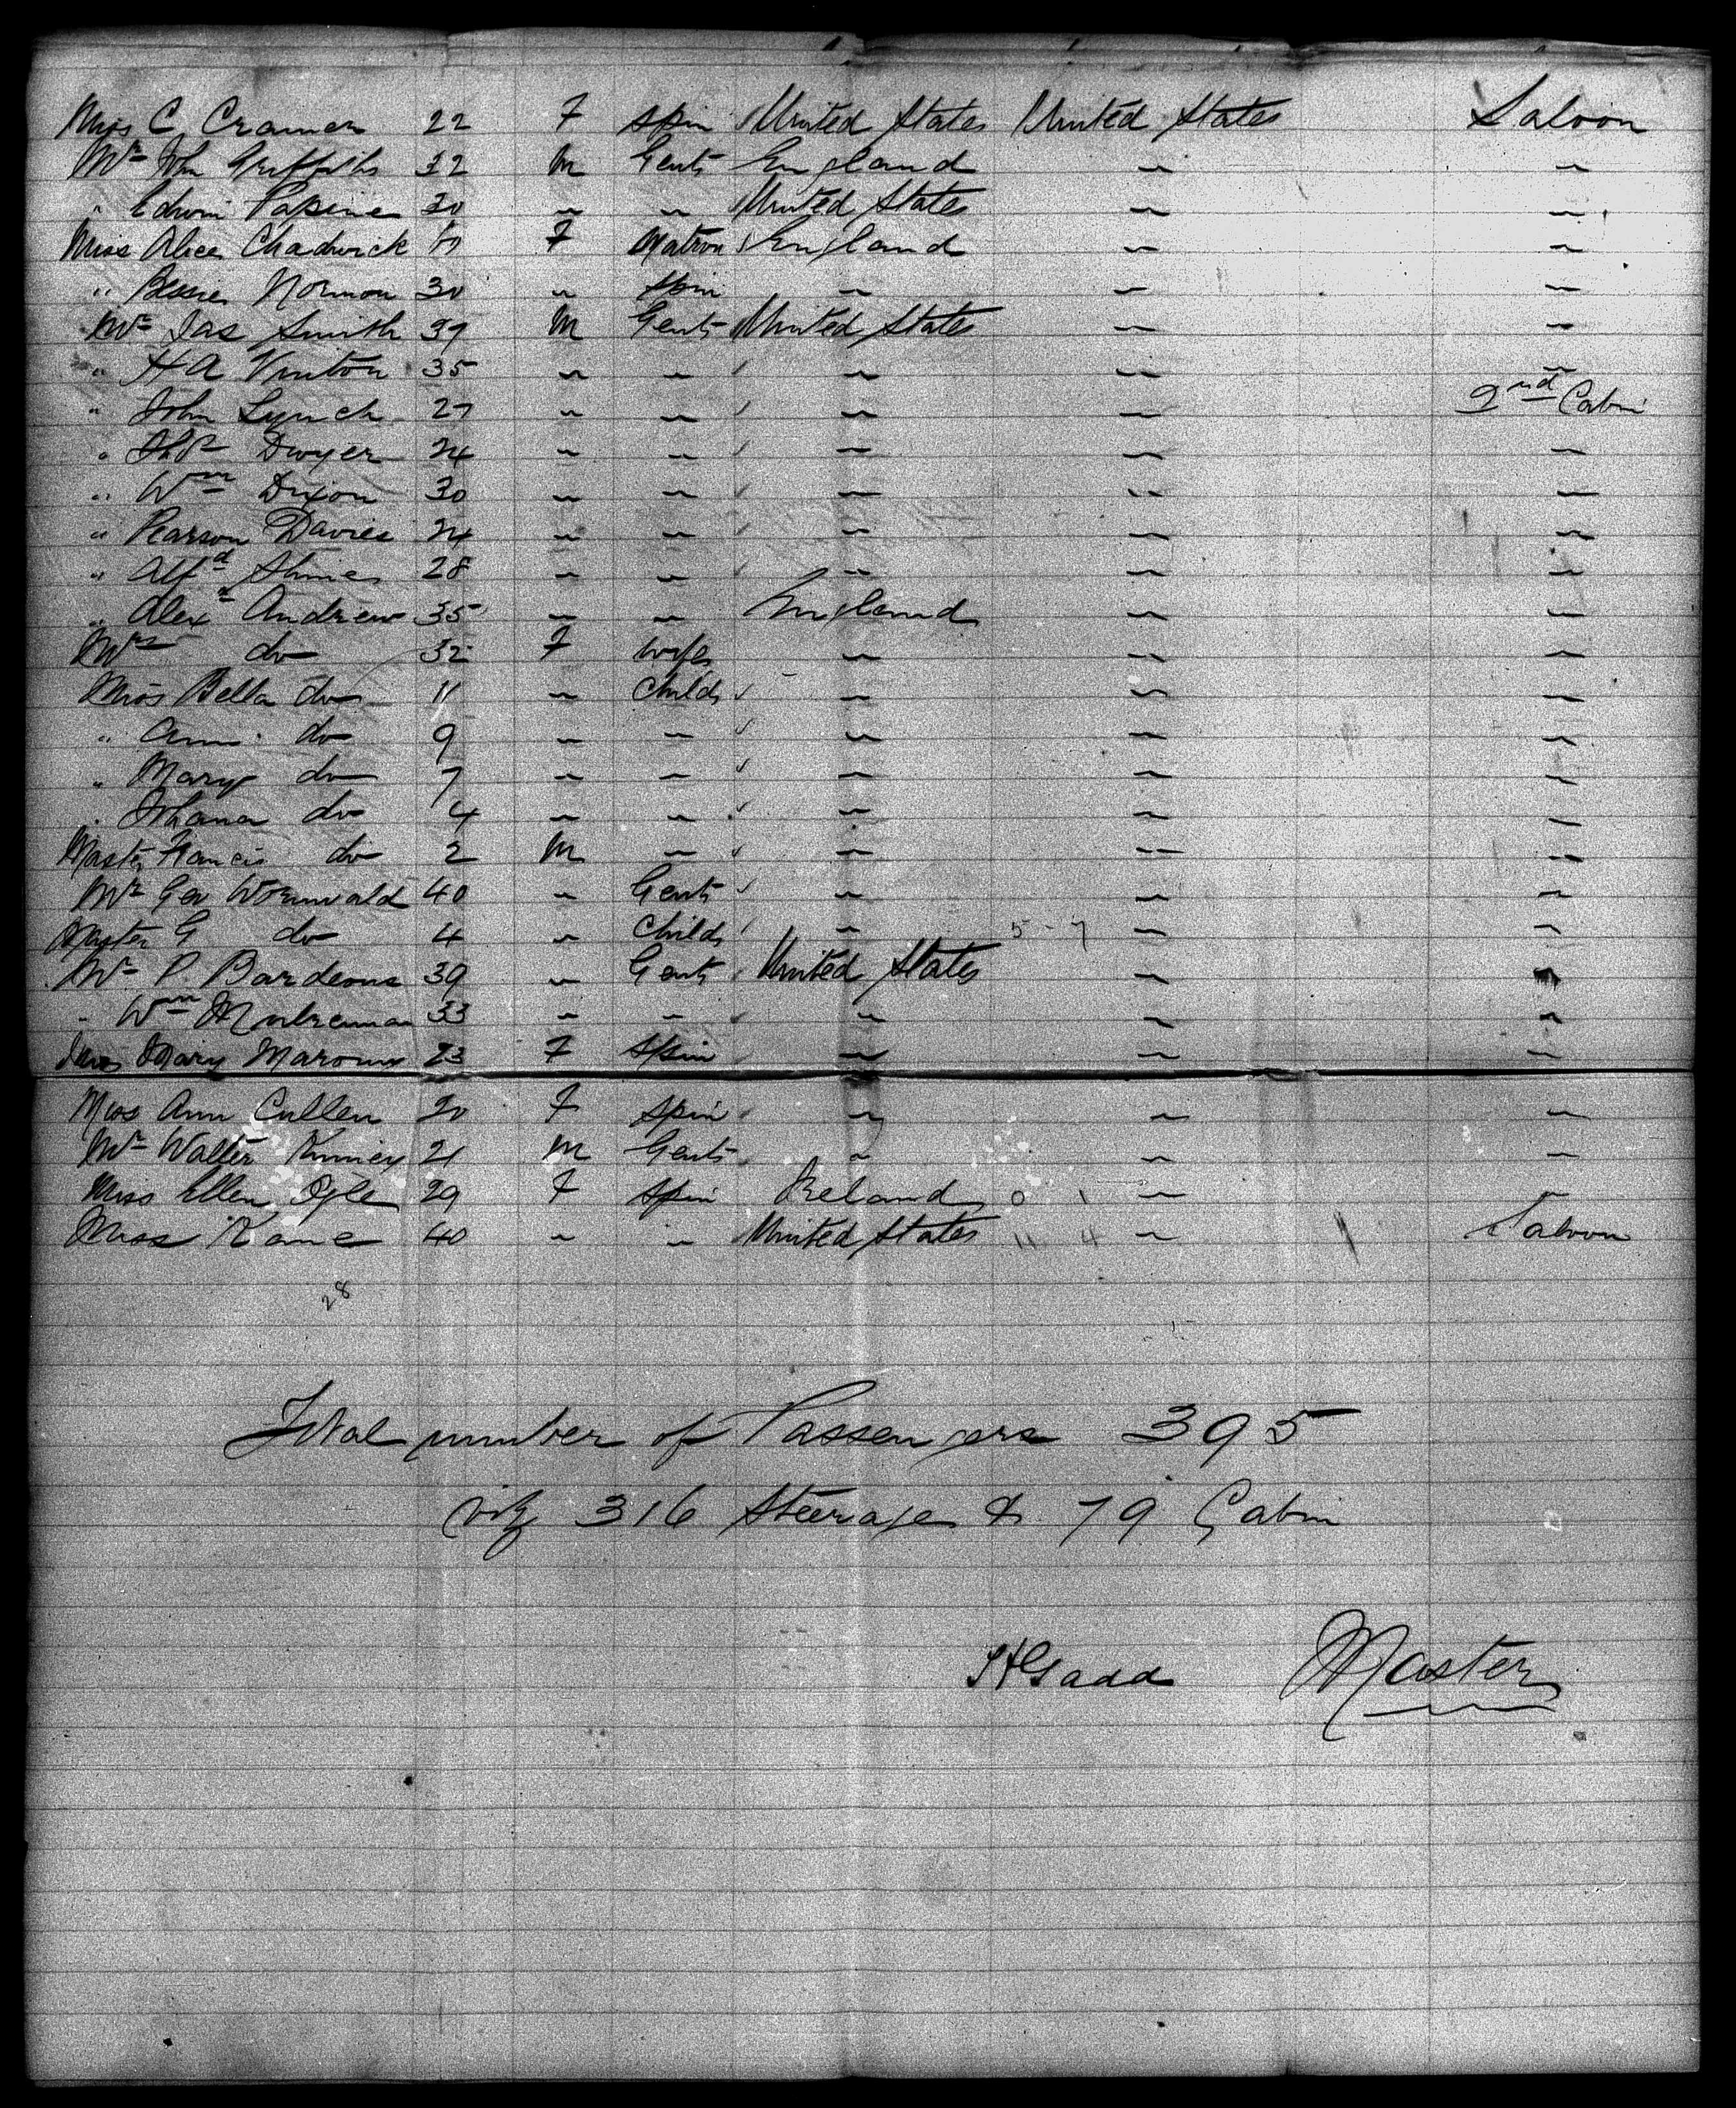 Miss C. Cramer 22 F Spin United States United States Saloon
Mr John Griffiths 32 M Gent England " "
" Edwin 30 " " United States " "
Miss Alice Chadwick F Matron England " "
" Bessie Norman 30 " Spin " " "
Mr Jas Smith 39 M Gent United States " "
" H A Vinton 35 " " " " "
" John Lynch 27 " " " " 2nd Cabin
" Dwyer 24 " " " " "
" Wm Dixon 30 " " " " "
" Pearson Davies 24 " " " " "
" Alfd 28 " " " " "
" Alexr Andrew 35 " " England " "
Mrs do 32 F Wife " " "
Miss Bella do 11 " Child " " "
" Ann do 9 " " " " "
" Mary do 7 " " " " "
" Johana do 4 " " " " "
Master Francis do 2 M " " " "
Mr Geo Wormvald 40 " Gent " " "
Master G do 4 " Child " 5-7 " "
Mr P Bardeous 39 " Gent United States " "
" Wm 33 " " " " "
Miss Mary 23 F Spin " " "
Miss Ann Cullen 20 F Spin " " "
Mr Walter Kinney 21 M Gent " " "
Miss Ellen Ogle 29 F Spin Ireland 0 1 " "
Miss Kane 40 " " United States 11 4 " Saloon
28
Total number of Passengers 395
viz 316 Steerage & 79 Cabin
Gadd Master